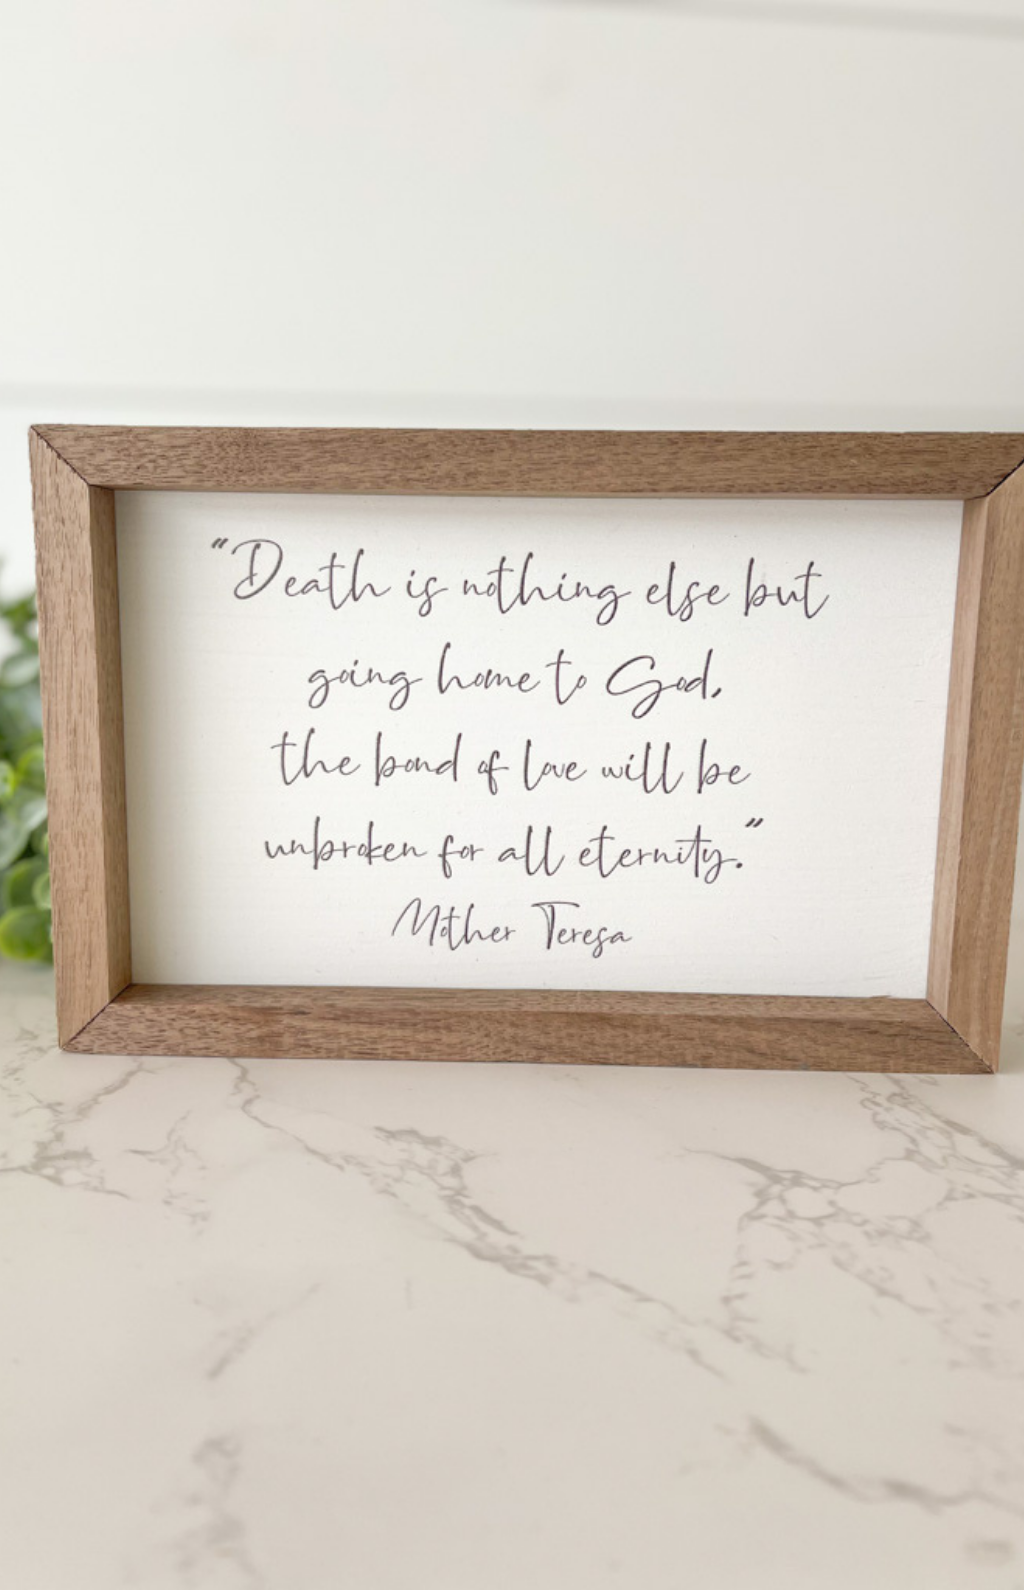 “Death is nothing else but
going home to God,
the bond of love will be
unbroken for all eternity.”
Mother Teresa